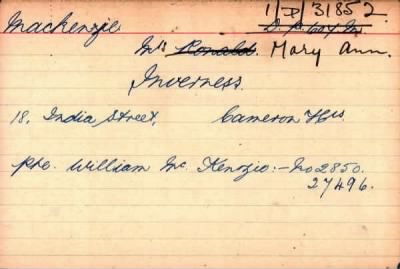 1/D/31852.
Mackenzie
Mrs Ronald. Mary Ann.
Inverness.
18, India Street, Cameron Hrs
Pte. William Mc. Kenzie:- No 2850.
27496.